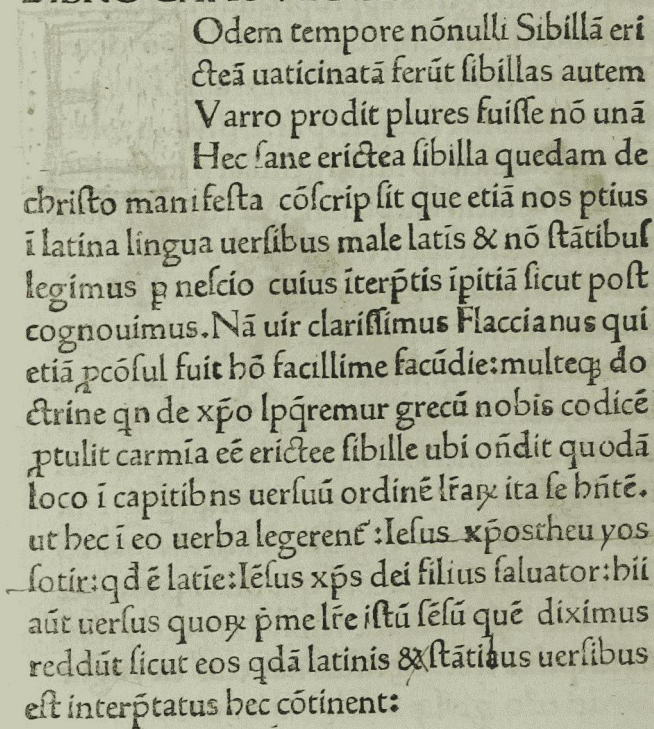 Odem tempore nōnulli Sibillā eri
cteā uaticinatā ferūt ſibillas autem
Varro prodit plures fuiſſe nō unā
Hec ſane erictea ſibilla quedam de
chriſto manifeſta cōſcripſit que etiā nos ptius
ī latina lingua uerſibus male latīs & nō ſtātibuſ
legimus ꝑ neſcio cuius īterp̄tis īpitiā ſicut poſt
cognouimus. Nā uir clariſſimus Flaccianus qui
etiā ꝓcōſul fuit hō facillime facūdie: multeqꝫ do
ctrine qn de xp̄o lpq̄remur grecū nobis codicē
ꝓtulit carmīa eē erictee ſibille ubi on̄dit quodā
loco ī capitibns uerſuū ordinē lr̄aꝝ ita ſe hn̄tē.
ut hec ī eo uerba legerent᷑: Ieſus xp̄os theu yos
ſotir: qd ē latīe: Iēſus xp̄s dei filius ſaluator: hii
aūt uerſus quoꝝ p̄me lr̄e iſtū ſēſū quē diximus
reddūt ſicut eos qdā latinis & ſtātibus uerſibus
eſt interp̄tatus hec cōtinent: